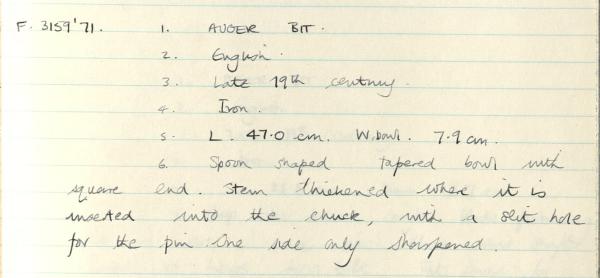 F. 3159'71. 1. AUGER BIT.
2. English.
3. Late 19th century.
4. Iron.
5. L. 47.0 cm. W. bowl. 7.9 cm.
6. Spoon shaped tapered bowl with
square end. Stem thickened where it is
inserted into the chuck, with a slit hole
for the pin. One side only sharpened.